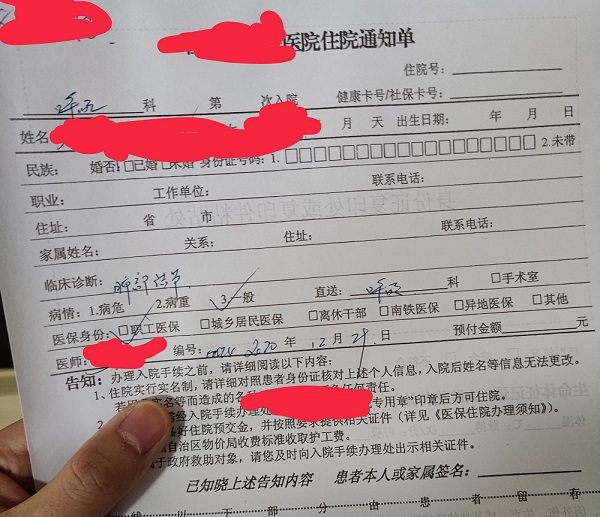 医院住院通知单
住院号：
呼吸 科 第 次入院 健康卡号/社保卡号：
姓名 月 天 出生日期： 年 月 日
民族： 婚否：□已婚□未婚 身份证号码：1.□□□□□□□□□□□□□□□□□□ 2.未带
职业： 工作单位： 联系电话：
住址： 省 市
家属姓名： 关系： 住址： 联系电话：
临床诊断：肺部结节
病情：1.病危 2.病重 3.一般 直送：呼吸 科 □手术室
医保身份：□职工医保 □城乡居民医保 □离休干部 □南铁医保 □异地医保 □其他
医师： 编号： 年 12 月 29 日 预付金额 元
告知：办理入院手续之前，请详细阅读以下内容：
1、住院实行实名制，请详细对照患者身份证核对上述个人信息，入院后姓名等信息无法更改。
若因 实名等而造成的 任何责任。
2、 经入院手续办理处 专用章”印章后方可住院。
备好住院预交金，并按照要求提供相关证件（详见《医保住院办理须知》）。
自治区物价局收费标准收取护工费。
属于政府救助对象，请您及时向入院手续办理处出示相关证件。
已知晓上述告知内容 患者本人或家属签名：
线 以 下 部 分 由 患 者 留 存
身份证复印处或复印件粘贴处